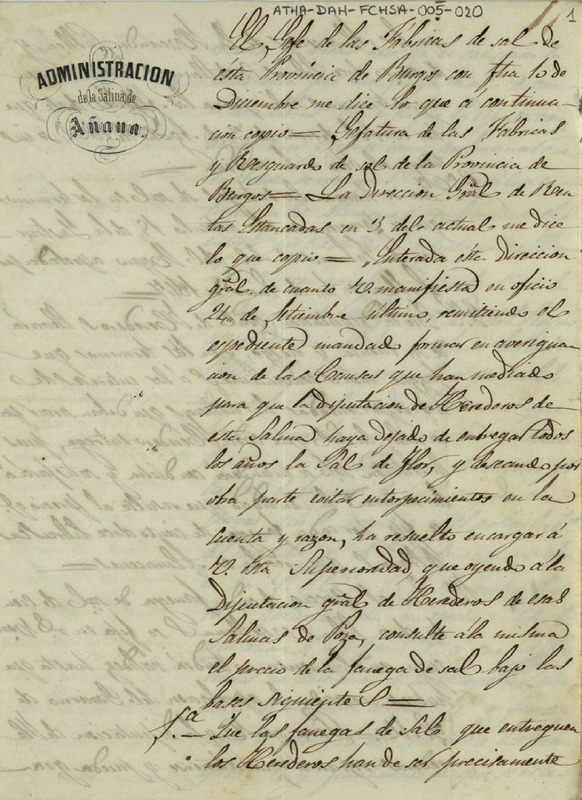 ATHA-DAH-FCHSA-005-020
1
ADMINISTRACION
de la Salina de
Añana.
El Gefe de las Fabricas de sal de
ésta Provincia de Burgos con fha 10 de
Diciembre me dice lo que á continua-
cion copio = Gefatura de las Fabricas
y Resguardo de sal de la Provincia de
Burgos = La Direccion Gral de Ren-
tas Estancadas en 3 del actual me dice
lo que copio = Enterada esta direccion
gral. de cuanto V. manifiesta en oficio
24 de Setiembre último, remitiendo el
espediente mandado formar en averigua-
cion de las Causas que han mediado
para que la Diputacion de Herederos de
esta Salina haya dejado de entregar todos
los años la Sal de Flor, y deseando por
otra parte evitar entorpecimientos en la
cuenta y razon, ha resuelto encargar á
V. esta Superioridad que oyendo á la
Diputacion gral de Herederos de esas
Salinas de Poza, consulte á la misma
el precio de la fanega de sal bajo las
bases siguientes =
1.ª - Que las fanegas de Sal que entreguen
los Herederos han de ser precisamente